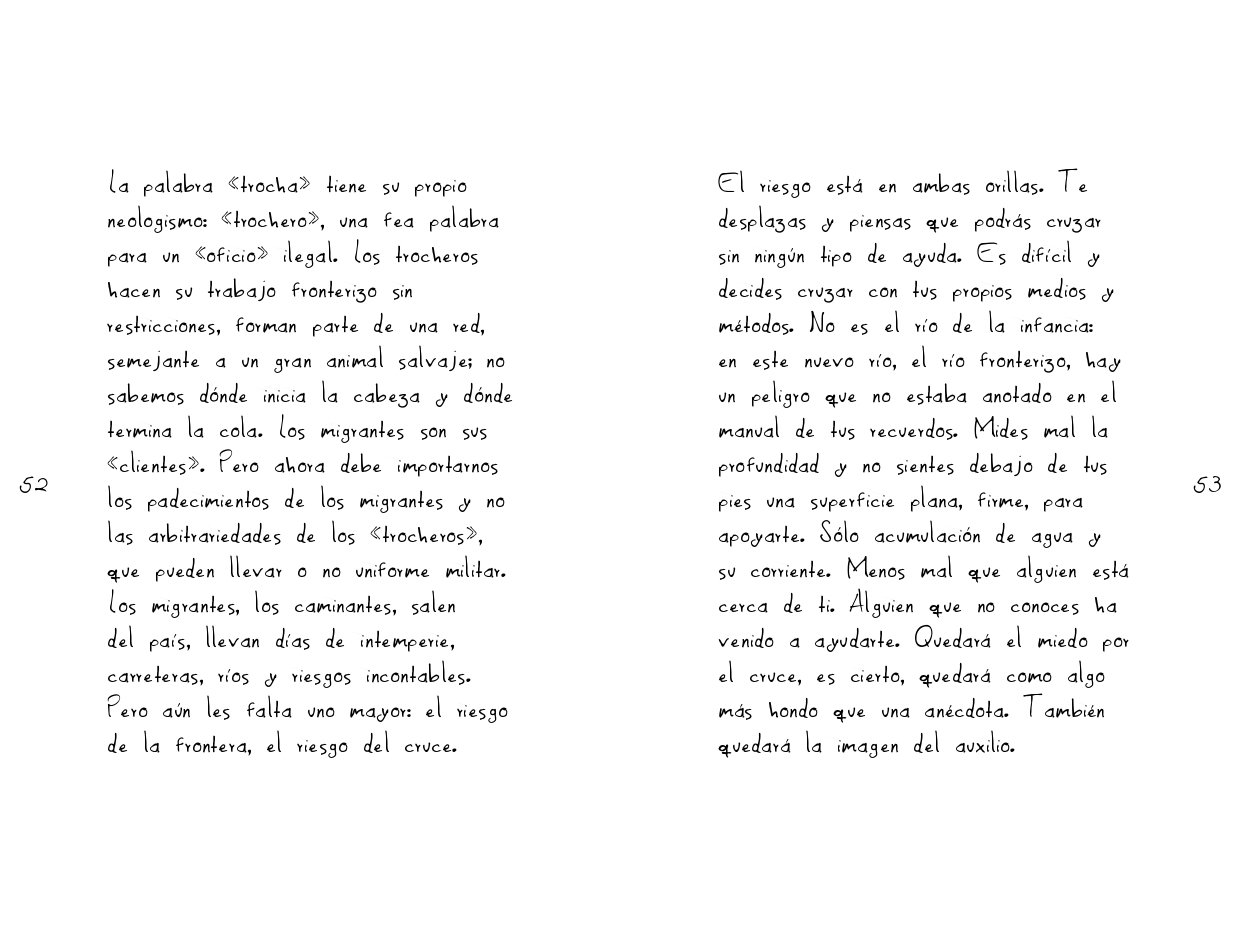 La palabra «trocha» tiene su propio
neologismo: «trochero», una fea palabra
para un «oficio» ilegal. Los trocheros
hacen su trabajo fronterizo sin
restricciones, forman parte de una red,
semejante a un gran animal salvaje; no
sabemos dónde inicia la cabeza y dónde
termina la cola. Los migrantes son sus
«clientes». Pero ahora debe importarnos
los padecimientos de los migrantes y no
las arbitrariedades de los «trocheros»,
que pueden llevar o no uniforme militar.
Los migrantes, los caminantes, salen
del país, llevan días de intemperie,
carreteras, ríos y riesgos incontables.
Pero aún les falta uno mayor: el riesgo
de la frontera, el riesgo del cruce.
52
El riesgo está en ambas orillas. Te
desplazas y piensas que podrás cruzar
sin ningún tipo de ayuda. Es difícil y
decides cruzar con tus propios medios y
métodos. No es el río de la infancia:
en este nuevo río, el río fronterizo, hay
un peligro que no estaba anotado en el
manual de tus recuerdos. Mides mal la
profundidad y no sientes debajo de tus
pies una superficie plana, firme, para
apoyarte. Sólo acumulación de agua y
su corriente. Menos mal que alguien está
cerca de ti. Alguien que no conoces ha
venido a ayudarte. Quedará el miedo por
el cruce, es cierto, quedará como algo
más hondo que una anécdota. También
quedará la imagen del auxilio.
53